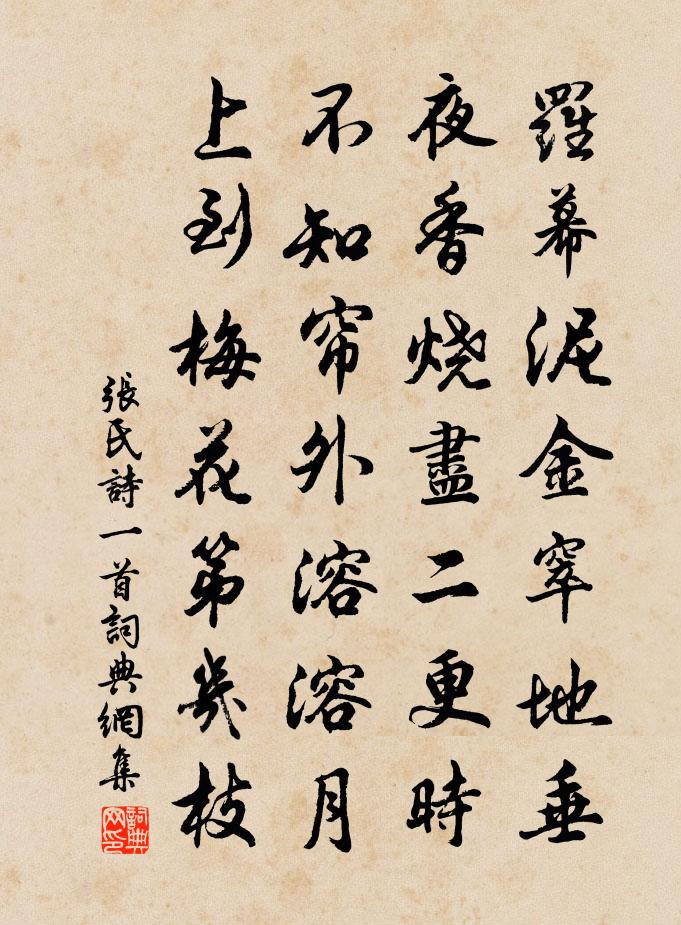 羅幕泥金窣地垂
夜香烧盡二更時
不知帘外溶溶月
上到梅花第幾枝
張氏詩一首詞典網集
詞典网印